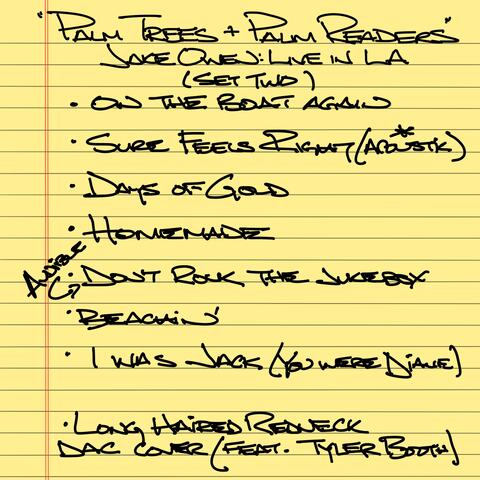 "Palm Trees + Palm Readers"
Jake Owen: Live in LA
(Set Two)
• On The Boat Again
• Sure Feels Right (Acoustic)*
• Days of Gold
• Homemade
Audible
• Don't Rock The Jukebox
• Beachin'
• I Was Jack (You Were Diane)
• Long Haired Redneck
DAC Cover (feat. Tyler Booth)